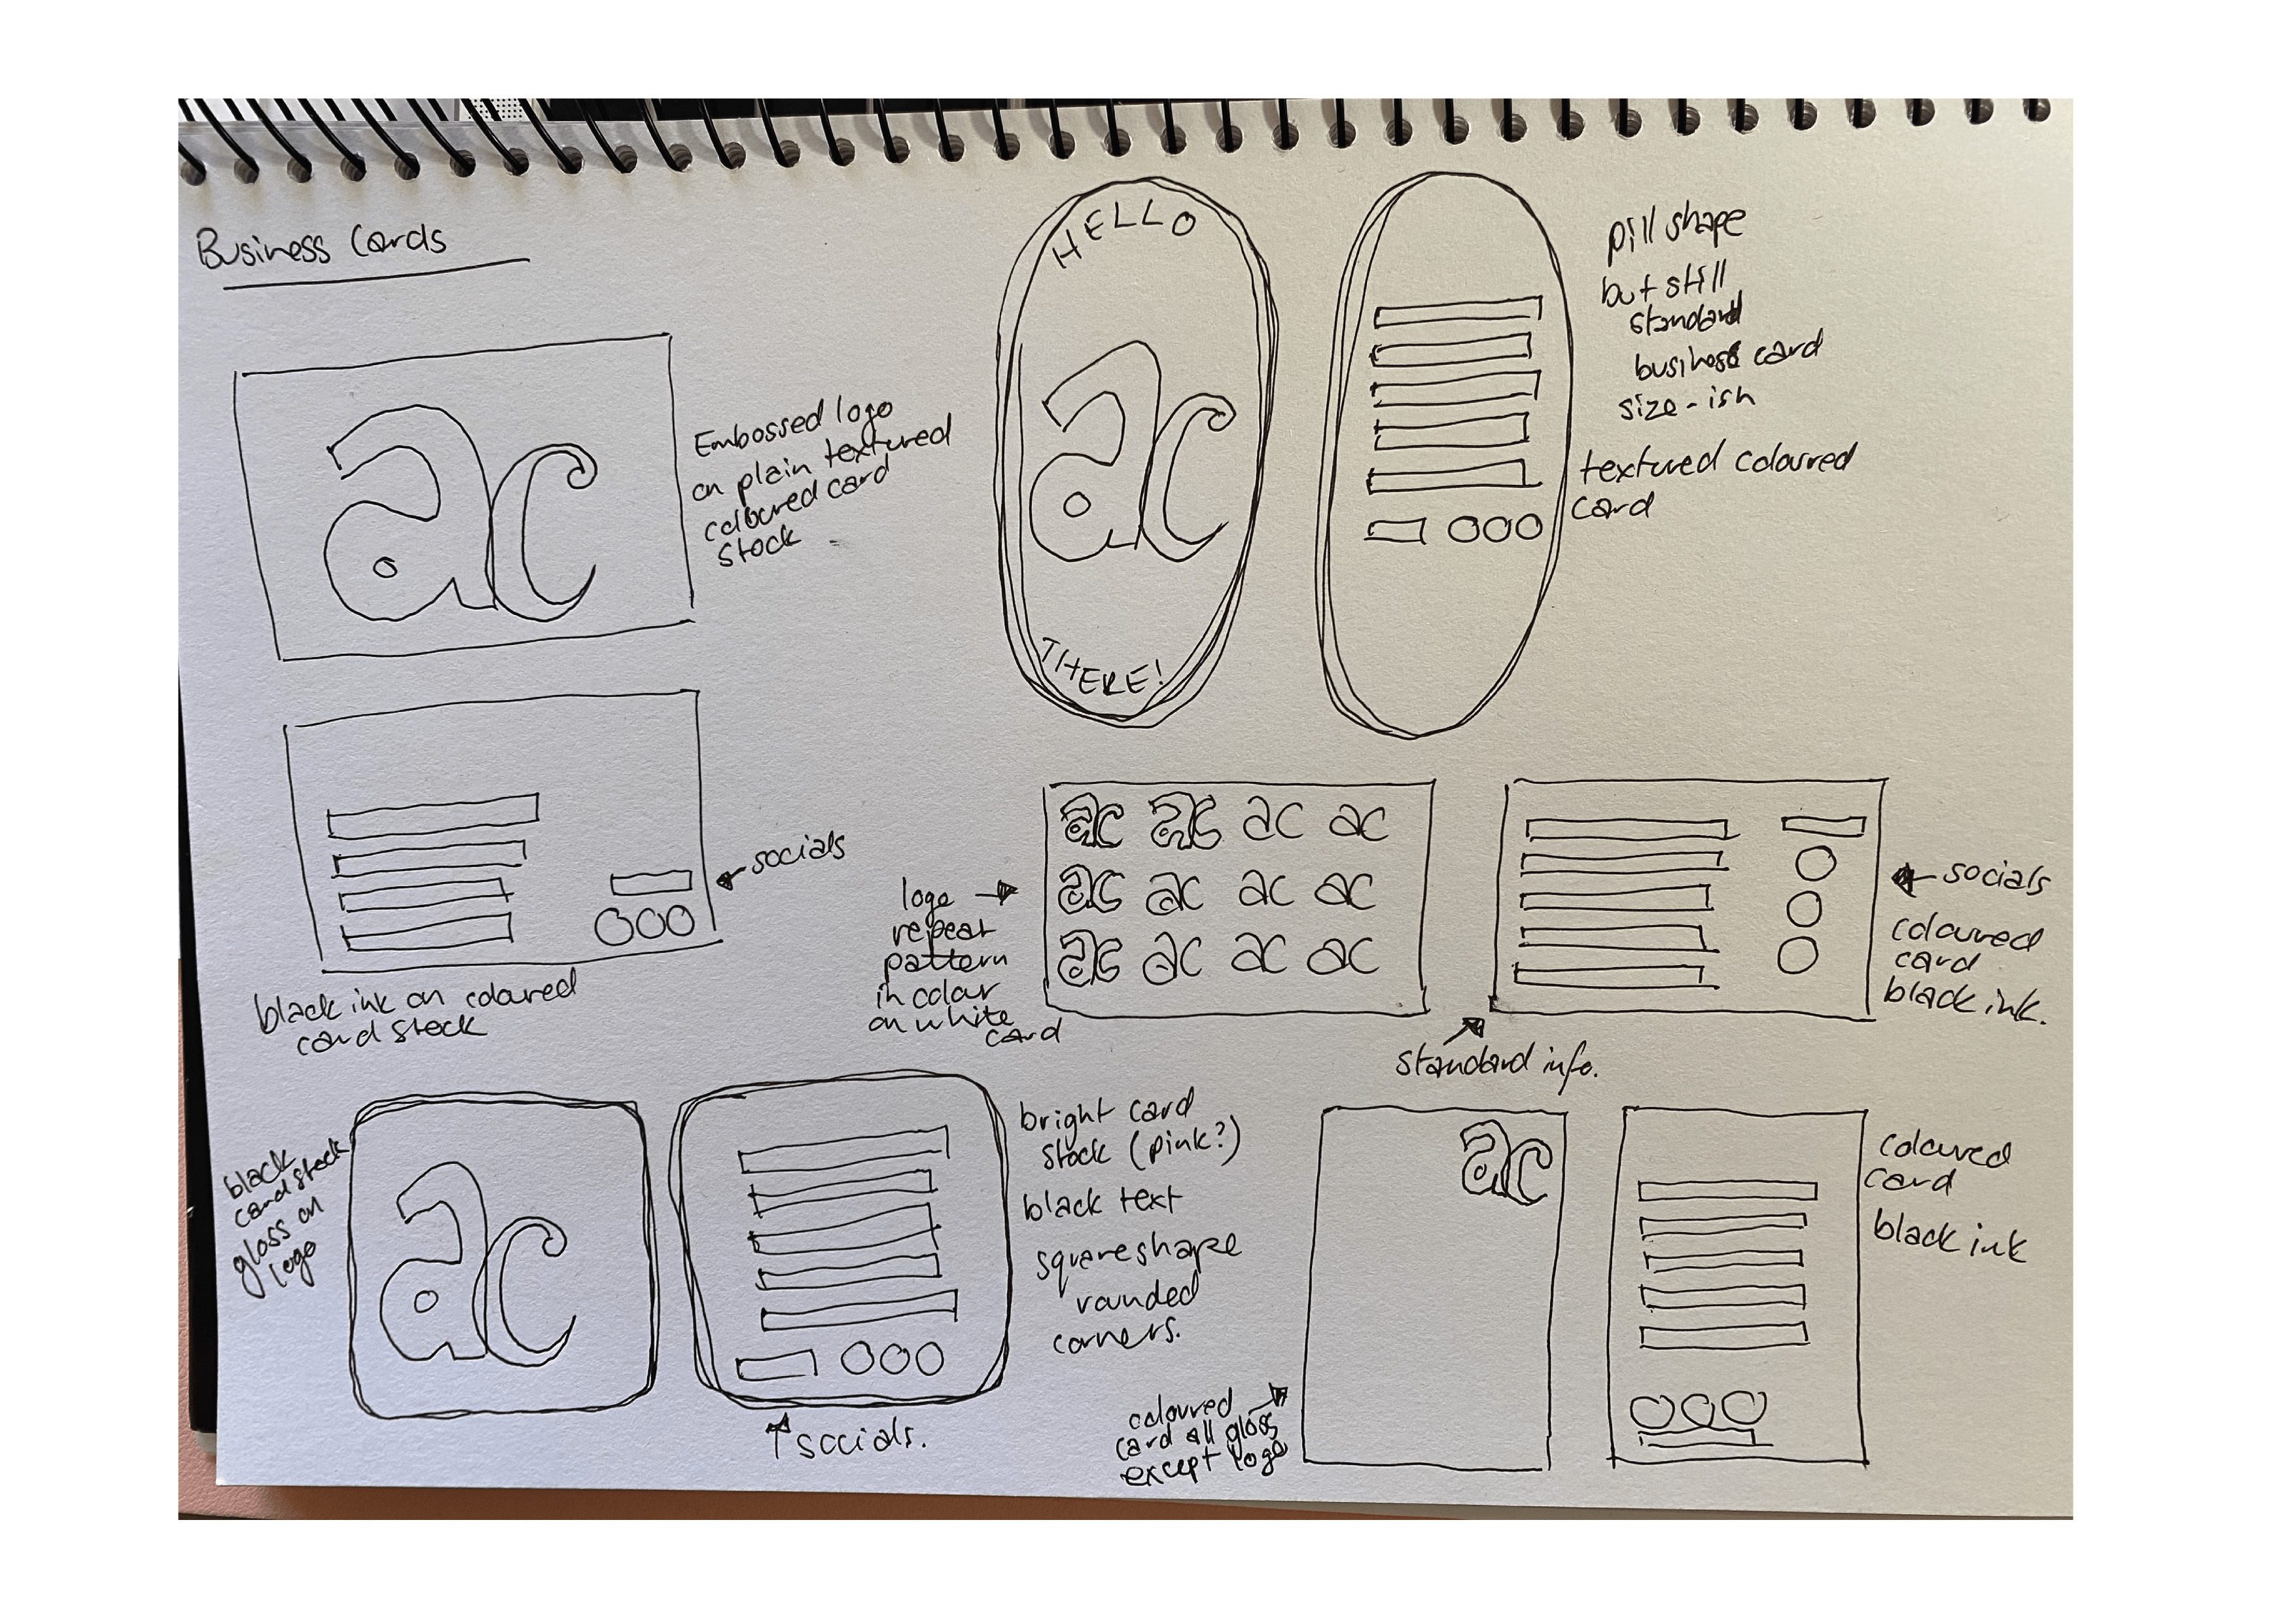 Business Cards
ac
Embossed logo
on plain textured
coloured card
stock
socials
black ink on coloured
card stock
HELLO
ac
THERE!
pill shape
but still
standard
business card
size-ish
textured coloured
card
logo
repeat
pattern
in colour
on white
card
ac ac ac ac
ac ac ac ac
ac ac ac ac
socials
coloured
card
black ink.
standard info.
black
card stock
gloss on
logo
ac
bright card
stock (pink?)
black text
square shape
rounded
corners.
socials.
coloured
card all gloss
except logo
ac
coloured
card
black ink